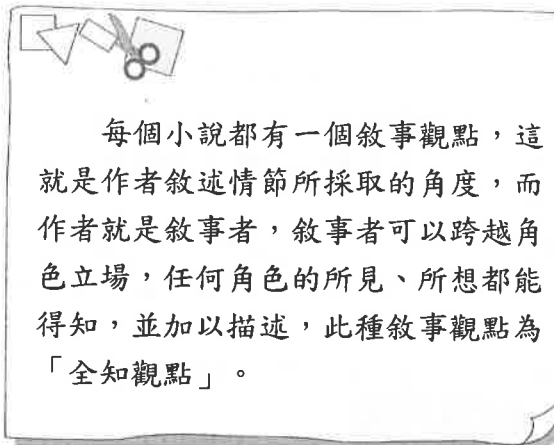 每個小說都有一個敘事觀點，這
就是作者敘述情節所採取的角度，而
作者就是敘事者，敘事者可以跨越角
色立場，任何角色的所見、所想都能
得知，並加以描述，此種敘事觀點為
「全知觀點」。